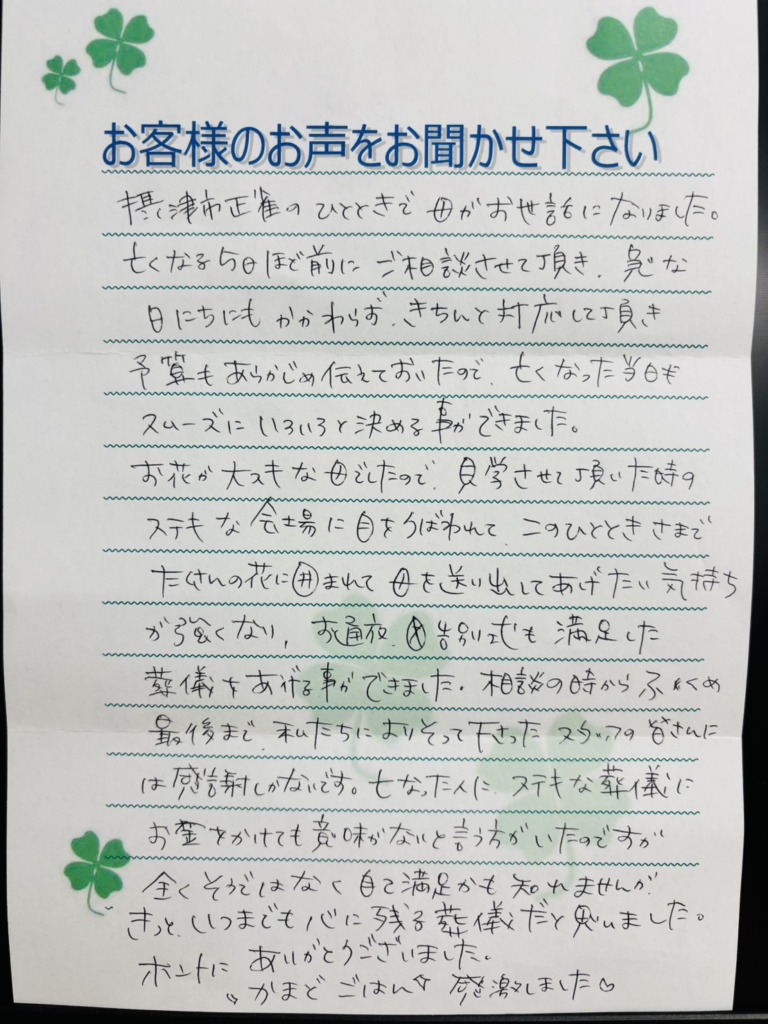 お客様のお声をお聞かせ下さい
摂津市正雀のひとときで 母がお世話になりました。
亡くなる5日ほど前に ご相談させて頂き、急な
日にちにも かかわらず、きちんと対応して頂き
予算も あらかじめ伝えておいたので、亡くなった当日も
スムーズに いろいろと決める事ができました。
お花が 大スキな 母でしたので、見学させて頂いた時の
ステキな 会場に 目をうばわれて、このひとときさまで
たくさんの花に囲まれて 母を送り出してあげたい気持ち
が強くなり、お通夜、告別式も 満足した
葬儀を あげる事ができました。相談の時からふくめ
最後まで、私たちによりそって下さった スタッフの皆さんに
は感謝しかないです。亡なった人に、ステキな葬儀に
お金をかけても意味がないと言う方がいたのですが
全くそうではなく 自己満足かも 知れませんが、
きっと、いつまでも心に残る葬儀だと思いました。
ホントに ありがとうございました。
"かまど ごはん" 感激しました♡